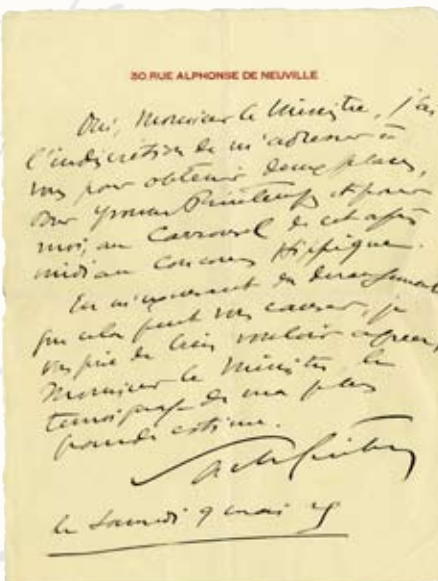 30, RUE ALPHONSE DE NEUVILLE
Oui, Monsieur le Ministre, j'ai
l'indiscrétion de m'adresser à
vous pour obtenir deux places,
pour Yvonne Printemps et pour
moi, au Carrousel de cet après
midi au Concours Hippique.
En m'excusant du dérangement
que cela peut vous causer, je
vous prie de bien vouloir agréer,
Monsieur le Ministre, le
témoignage de ma plus
grande estime.
Sacha Guitry
le Samedi 9 mai 25